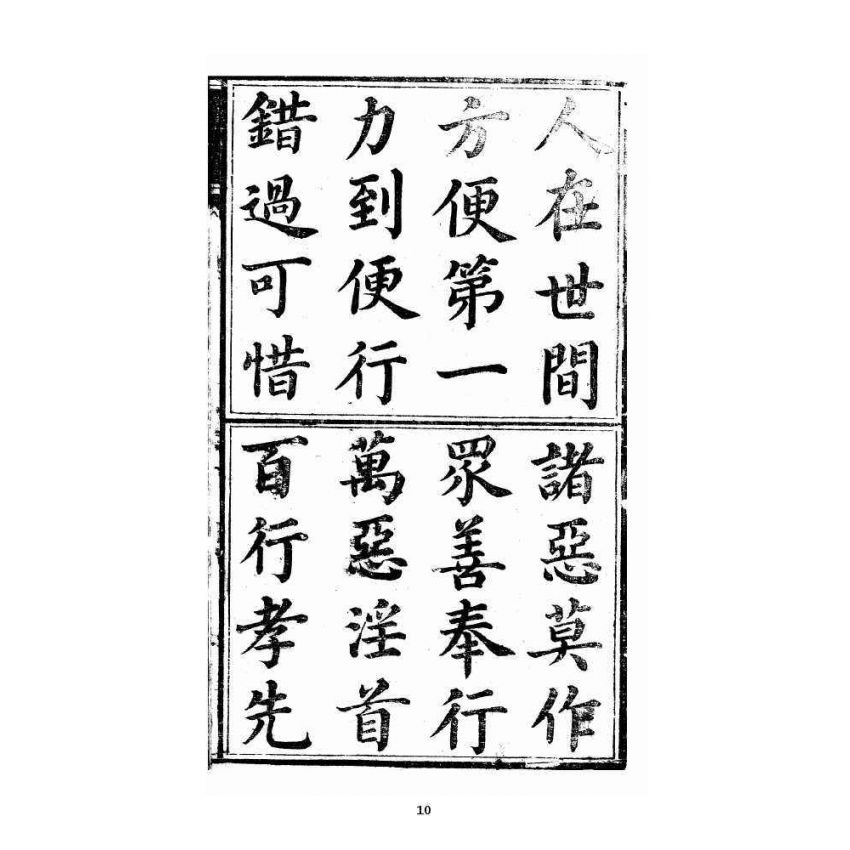 人在世間
方便第一
力到便行
錯過可惜
諸惡莫作
眾善奉行
萬惡淫首
百行孝先
10